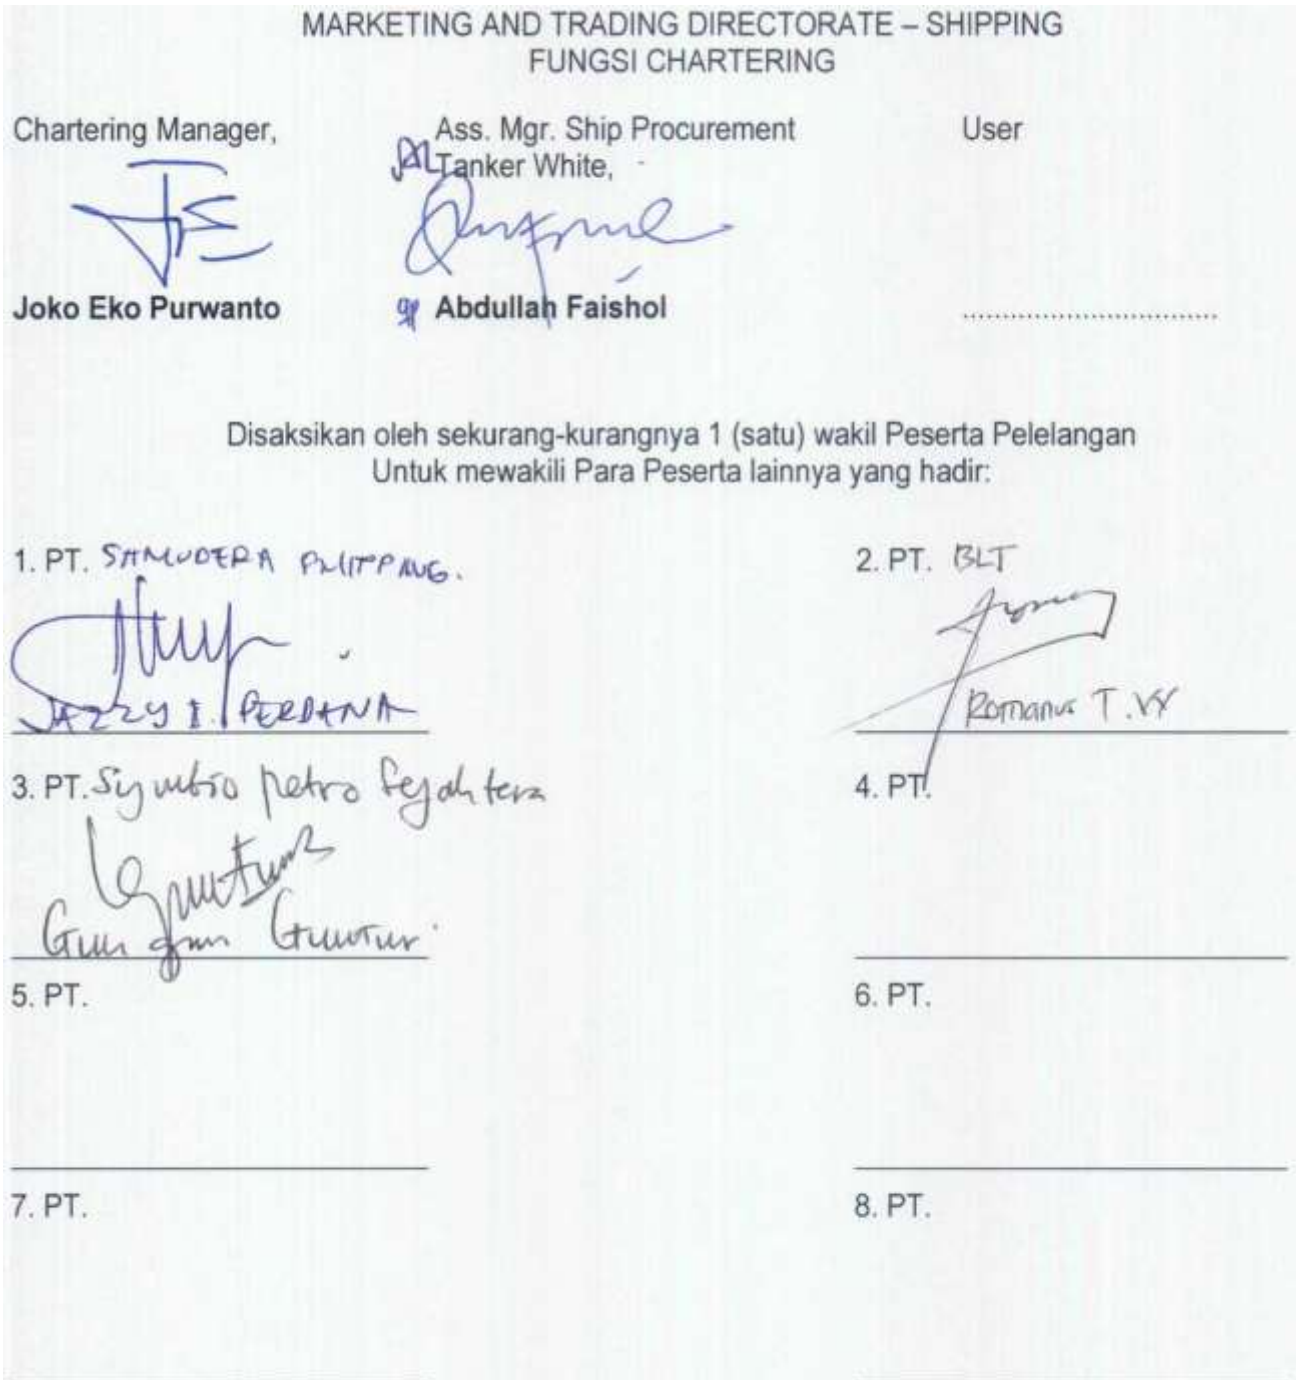 MARKETING AND TRADING DIRECTORATE – SHIPPING
FUNGSI CHARTERING
Chartering Manager,
Ass. Mgr. Ship Procurement
Tanker White,
User
Joko Eko Purwanto
Abdullah Faishol
..............................
Disaksikan oleh sekurang-kurangnya 1 (satu) wakil Peserta Pelelangan
Untuk mewakili Para Peserta lainnya yang hadir:
1. PT. SAMUDERA
JAZZY I. PERDANA
2. PT. BLT
Romanus T.
3. PT. Symbio petro Sejahtera
Guntur
4. PT.
5. PT.
6. PT.
7. PT.
8. PT.